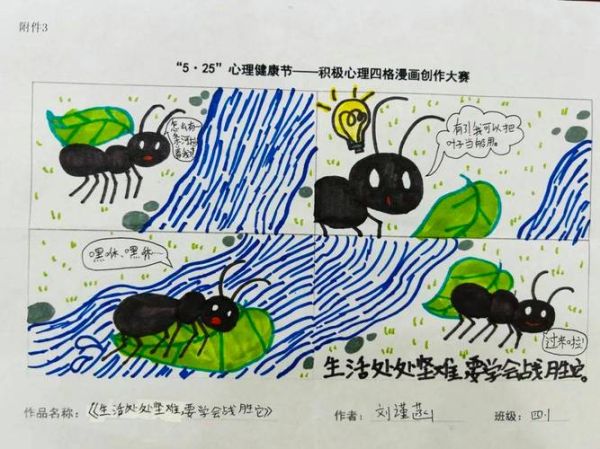 附件3
“5·25”心理健康节——积极心理四格漫画创作大赛
怎么有一
条河
有了我可以把
叶子当船用。
嘿咻、嘿咻…
过来啦!
生活处处坚难,要学会战胜它。
作品名称:《生活处处坚难,要学会战胜它》 作者:刘谨 班级:四.1